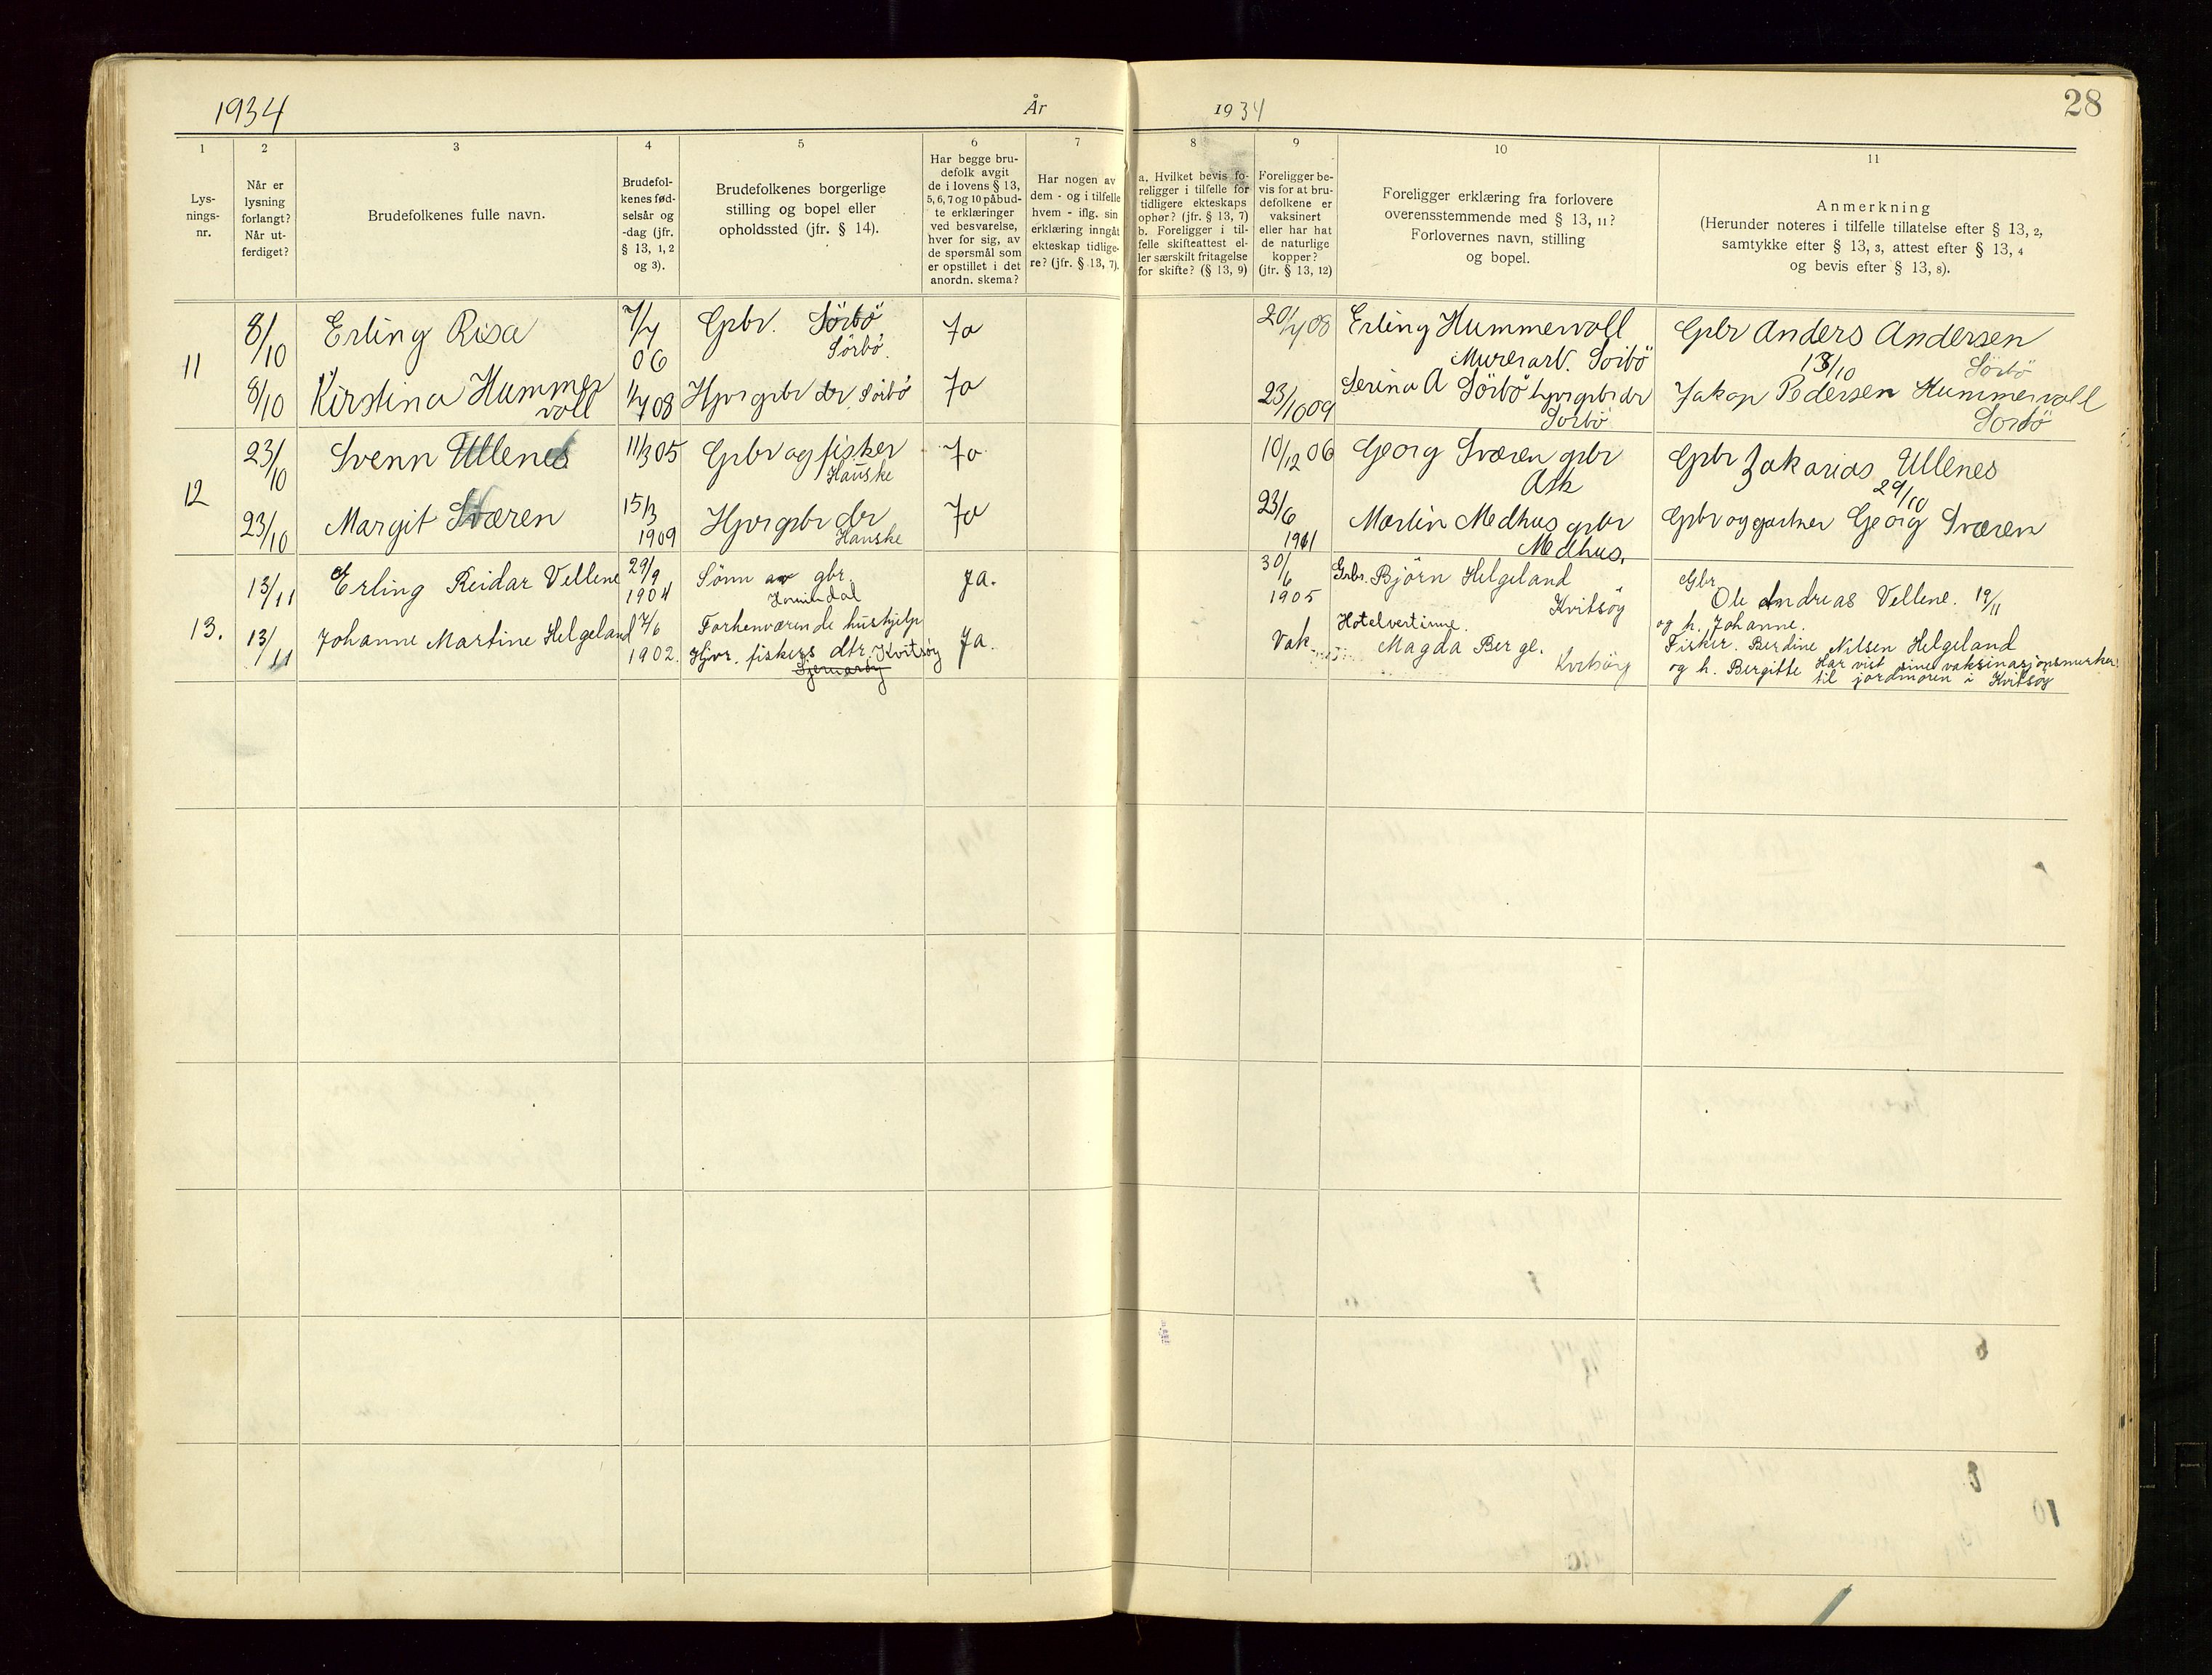 1934
År
1934
28
1
2
3
4
5
6
7
8
9
10
11
Lys-
nings-
nr.
Når er
lysning
forlangt?
Når ut-
ferdiget?
Brudefolkenes fulle navn.
Brudefol-
kenes fød-
selsår og
-dag (jfr.
§ 13, 1, 2
og 3).
Brudefolkenes borgerlige
stilling og bopel eller
opholdssted (jfr. § 14).
Har begge bru-
defolk avgit
de i lovens § 13,
5, 6, 7 og 10 påbud-
te erklæringer
ved besvarelse,
hver for sig, av
de spørsmål som
er opstillet i det
anordn. skema?
Har nogen av
dem - og i tilfelle
hvem - iflg. sin
erklæring inngåt
ekteskap tidlige-
re? (jfr. § 13, 7).
a. Hvilket bevis fo-
religger i tilfelle for
tidligere ekteskaps
ophør? (jfr. § 13, 7)
b. Foreligger i til-
felle skifteattest el-
ler særskilt fritagelse
for skifte? (§ 13, 9)
Foreligger be-
vis for at bru-
defolkene er
vaksinert
eller har hat
de naturlige
kopper?
(jfr. § 13, 12)
Foreligger erklæring fra forlovere
overensstemmende med § 13, 11?
Forlovernes navn, stilling
og bopel.
Anmerkning
(Herunder noteres i tilfelle tillatelse efter § 13, 2,
samtykke efter § 13, 3, attest efter § 13, 4
og bevis efter § 13, 8).
11
8/10
Erling Risa
7/4
06
Gpbr. Sörbö
Sörbö.
Ja
20/4 08
Erling Hummervoll
Murerarb. Sörbö
Gpbr Anders Andersen
13/10
Sörbö
8/10
Kirstina Hummer
voll
11/4 08
Hjvr gpbr dr Sörbö
Ja
23/10 09
Serina A Sörbö hjvr gpbr dr
Sörbö
Jakop Pedersen Hummervoll
Sörbö
12
23/10
Svenn Ullenes
11/3 05
Gpbr og fisker
Hauske
Ja
10/12 06
Georg Sværen gpbr
Ask
Gpbr Zakarias Ullenes
29/10
23/10
Margit Sværen
15/3
1909
Hjvr gpbr dr
Hauske
Ja
23/6
1911
Martin Medhus gpbr
Medhus.
Gpbr og gartner Georg Sværen
13.
13/11
Erling Reidar Vellene
29/9
1904
Sönn av gbr.
Ja.
30/6
1905
Gbr. Björn Helgeland
Kvitsöy
Gbr
Ole Andreas Vellene. 19/11
og h. Johanne.
13/11
Johanne Martine Helgeland
7/6
1902.
Forhenværende hushjelp
Hjvr. fiskers dtr. Kvitsöy
Ja.
Vak
Hotelvertinne.
Magda Berge.
Kvitsöy
Fisker. Berdine Nilsen Helgeland
og h. Bergitte Har vist sine vaksinasjonsmerker
til jordmoren i Kvitsöy